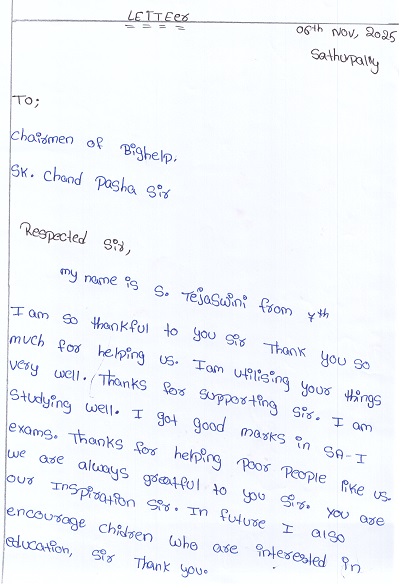 LETTEer
06th Nov, 2025
Sathupally
TO;
Chairmen of Bighelp.
SK. Chand Pasha Sir
Respected Sir,
my name is S. Tejaswini from 7th
I am so thankful to you Sir Thank you so
much for helping us. I am utilising your things
very well. Thanks for supporting Sir. I am
Studying well. I got good marks in SA-I
exams. Thanks for helping Poor People like us.
we are always greatful to you Sir. you are
our Inspiration Sir. In future I also
encourage chidren who are interested in
education, Sir Thank you.